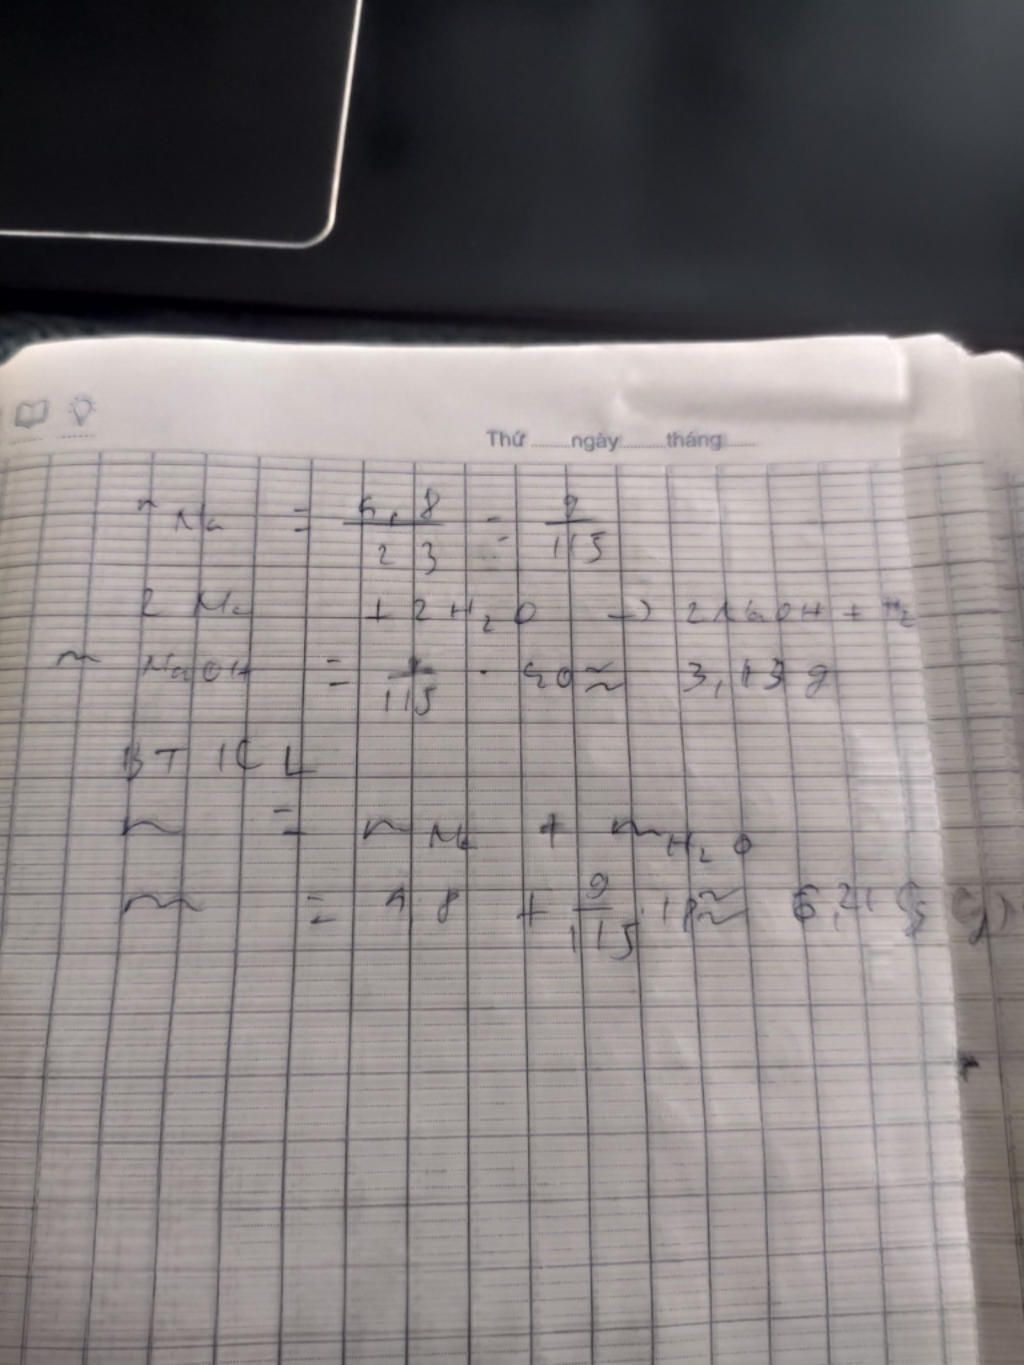 Thứ ........ ngày ........ tháng ........
n Na = 1,8 / 23 = 9 / 115
2 Na + 2 H₂O → 2 NaOH + H₂
m NaOH = 9 / 115 . 40 ≈ 3,13 g
BTKL
m = m Na + m H₂O
m = 1,8 + 9 / 115 . 18 ≈